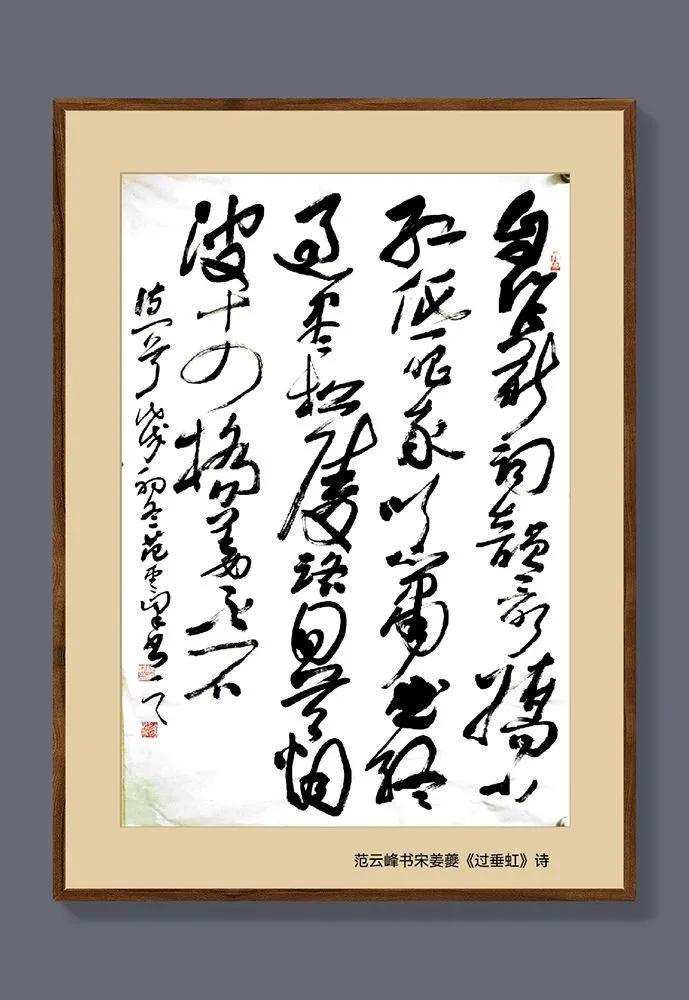 自作新詞韻最嬌小
红低唱我吹簫曲终
过尽松陵路回首烟
波十四橋姜
初冬范云峰书
范云峰书宋姜夔《过垂虹》诗